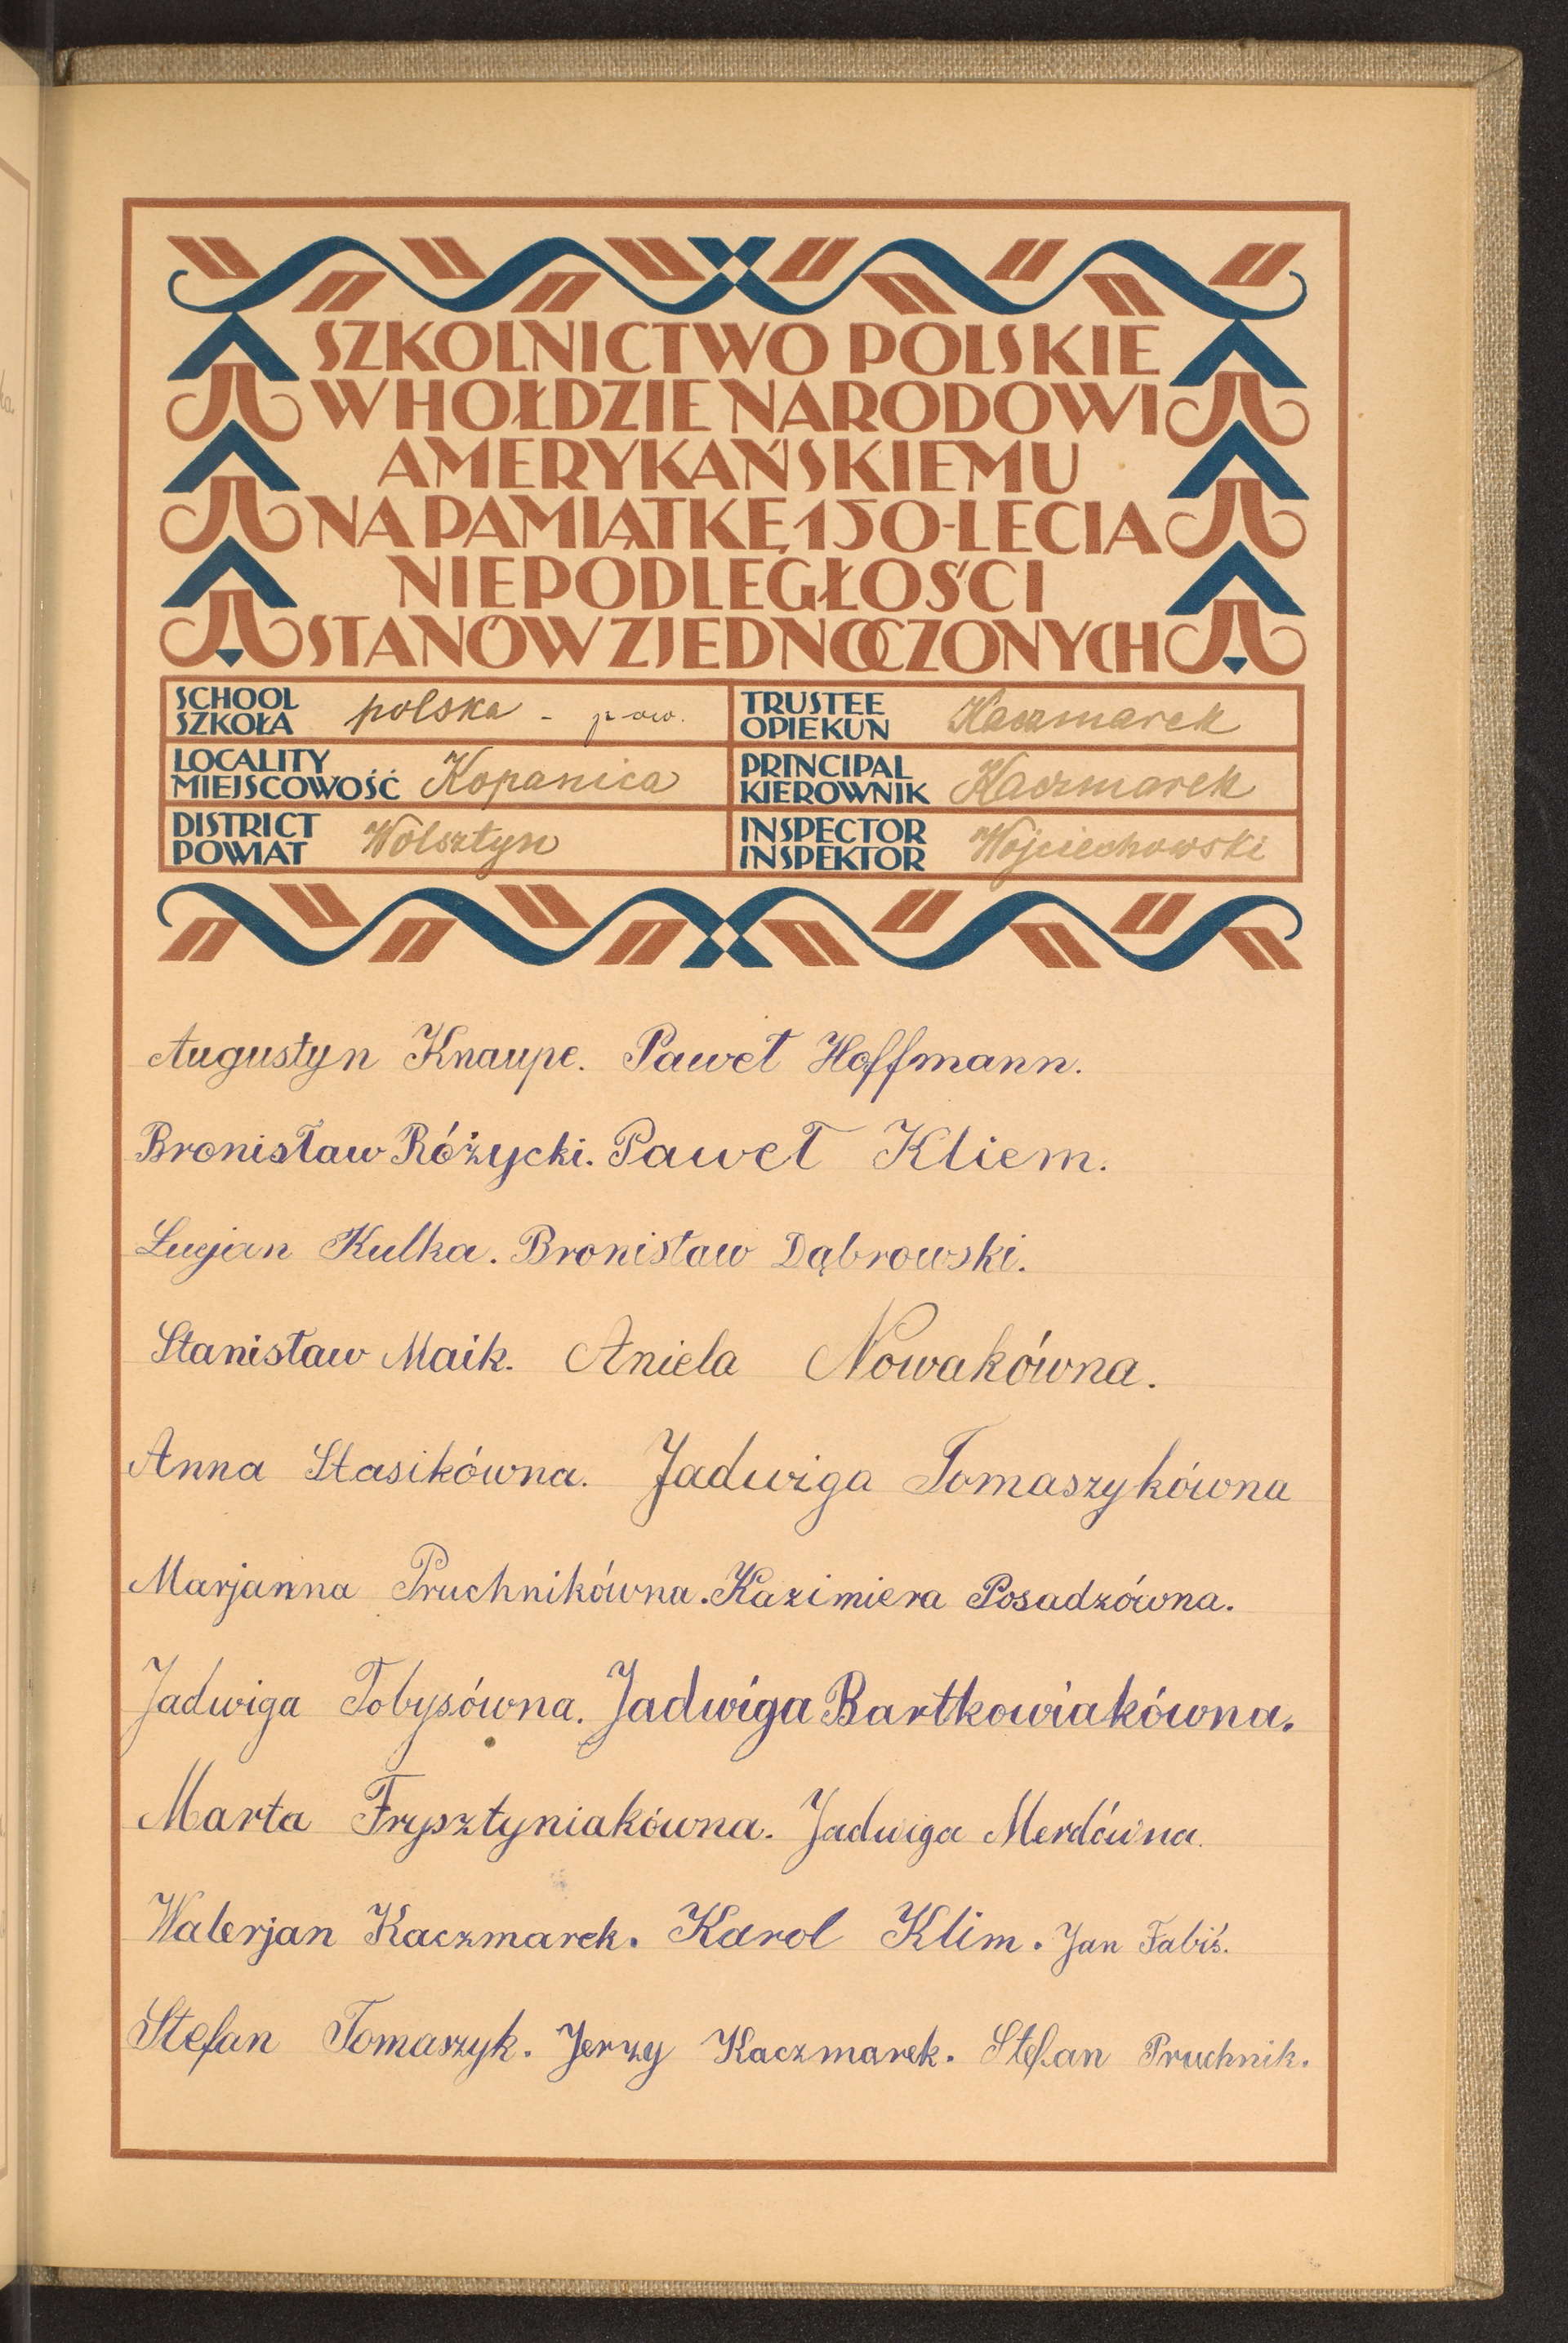 SZKOLNICTWO POLSKIE
W HOŁDZIE NARODOWI
AMERYKAŃSKIEMU
NA PAMIĄTKĘ 150-LECIA
NIEPODLEGŁOŚCI
STANÓW ZJEDNOCZONYCH
SCHOOL
SZKOŁA polska - pow.
TRUSTEE
OPIEKUN Kaczmarek
LOCALITY
MIEJSCOWOŚĆ Kopanica
PRINCIPAL
KIEROWNIK Kaczmarek
DISTRICT
POWIAT Wolsztyn
INSPECTOR
INSPEKTOR Wojciechowski
Augustyn Knaupe. Paweł Hoffmann.
Bronisław Różycki. Paweł Kliem.
Lucjan Kulka. Bronisław Dąbrowski.
Stanisław Maik. Aniela Nowakówna.
Anna Stasikówna. Jadwiga Tomaszykówna
Marjanna Pruchnikówna. Kazimiera Posadzówna.
Jadwiga Tobysówna. Jadwiga Bartkowiakówna.
Marta Frysztyniakówna. Jadwiga Merdówna.
Walerjan Kaczmarek. Karol Klim. Jan Fabiś.
Stefan Tomaszyk. Jerzy Kaczmarek. Stefan Pruchnik.